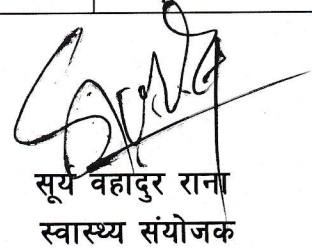 सूर्य वहादुर राना
स्वास्थ्य संयोजक